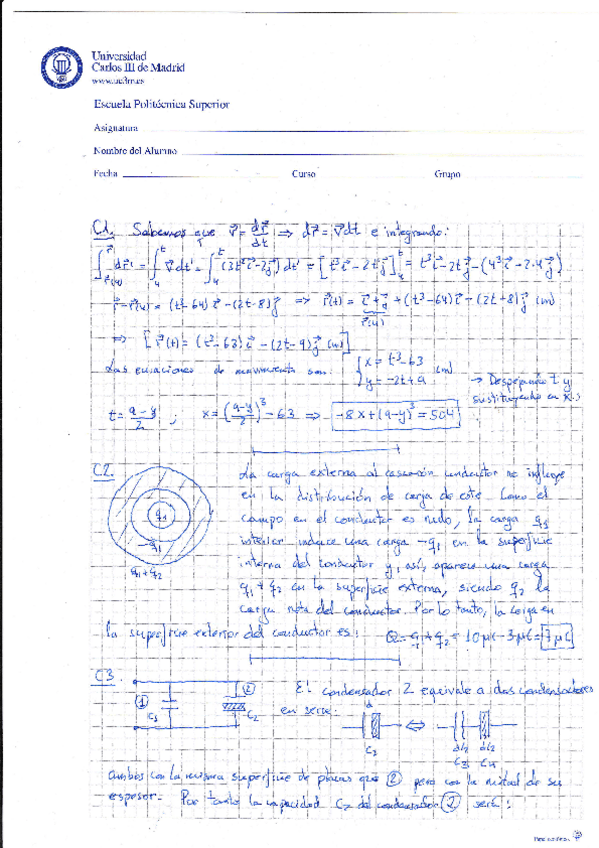 Universidad
Carlos III de Madrid
www.uc3m.es
Escuela Politécnica Superior
Asignatura
Nombre del Alumno
Fecha Curso Grupo
C1. Sabemos que v⃗ = dr⃗/dt ⇒ dr⃗ = v⃗dt e integrando:
∫_{r⃗(4)}^{r⃗} dr⃗' = ∫_4^t v⃗dt' = ∫_4^t (3t'²i⃗ - 2j⃗) dt' = [t'³i⃗ - 2t'j⃗]_4^t = t³i⃗ - 2tj⃗ - (4³i⃗ - 2·4j⃗)
r⃗ - r⃗(4) = (t³-64)i⃗ - (2t-8)j⃗ ⇒ r⃗(t) = i⃗ + j⃗ + (t³-64)i⃗ - (2t+8)j⃗ (m)
r⃗(4)
⇒ [r⃗(t) = (t³-63)i⃗ - (2t-9)j⃗ (m)]
Las ecuaciones de movimiento son: { x = t³-63
y = -2t+9 (m)
→ Despejando t y
sustituyendo en x.
t = (9-y)/2 ; x = ((9-y)/2)³ - 63 ⇒ -8x + (9-y)³ = 504
C2. La carga externa al cascarón conductor no influye
en la distribución de carga de este. Como el
campo en el conductor es nulo, la carga q₁
interior induce una carga -q₁ en la superficie
interna del conductor y, así, aparece una carga
q₁+q₂ en la superficie externa, siendo q₂ la
carga neta del conductor. Por lo tanto, la carga en
q₁
-q₁
q₁+q₂
la superficie exterior del conductor es: Q = q₁+q₂ = 10 μC - 3 μC = 7 μC
C3.
① C₁ ② C₂
El condensador 2 equivale a dos condensadores
en serie:
d ⇔ d/2 d/2
C₃ C₄
ambos con la misma superficie de placas que ② pero con la mitad de su
espesor. Por tanto la capacidad C₂ del condensador ② será: